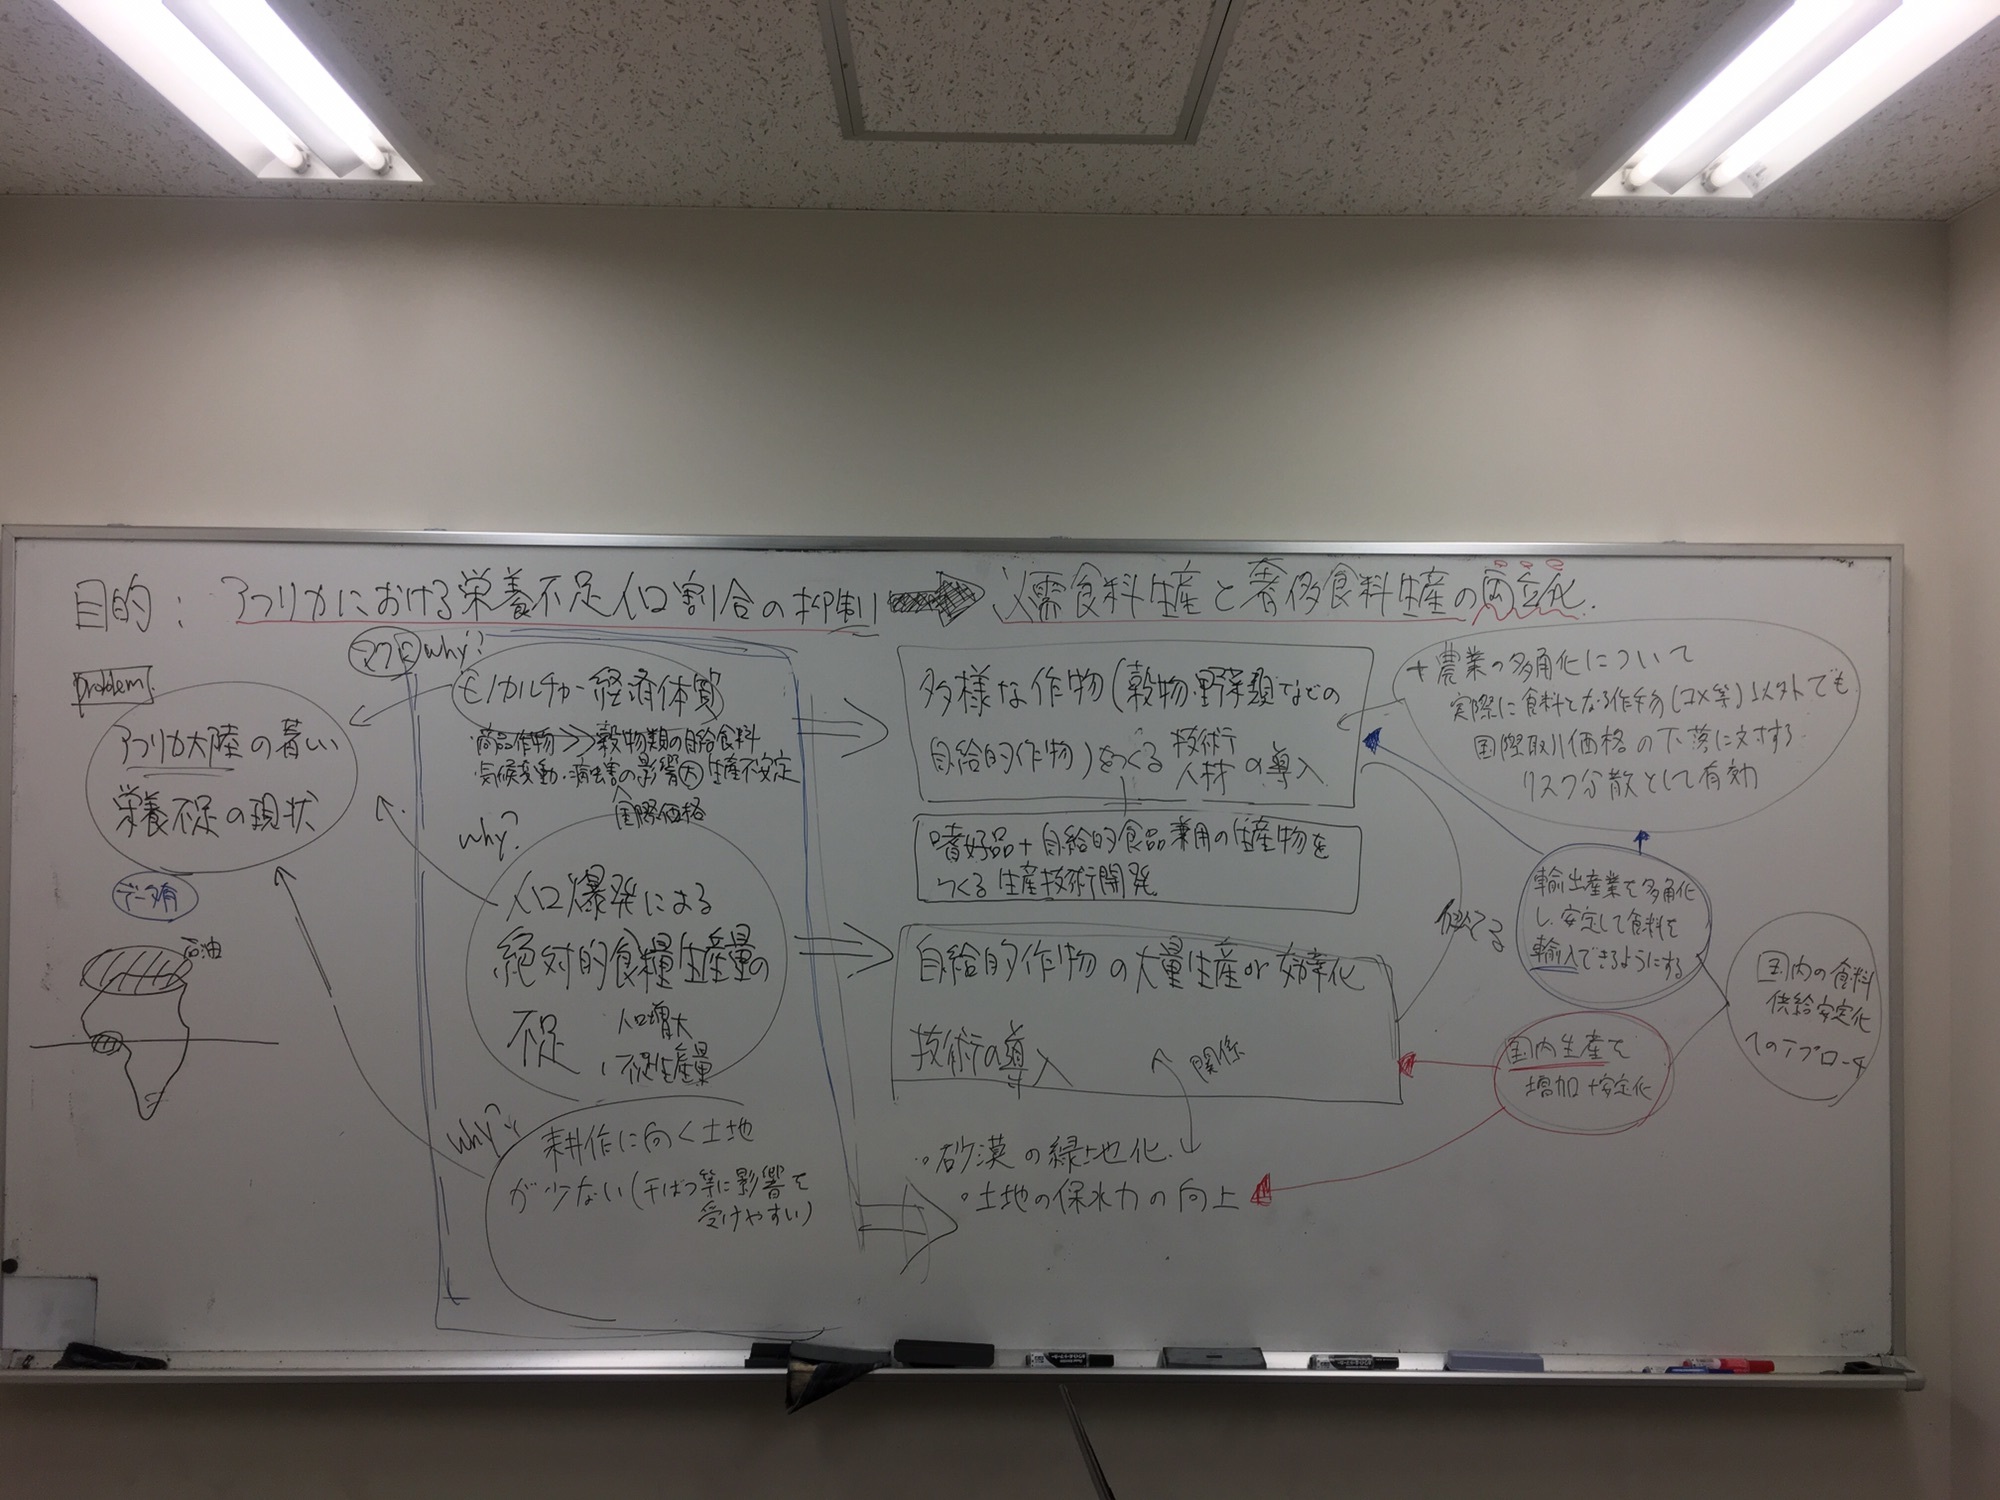 目的：アフリカにおける栄養不足人口割合の抑制 必需食料生産と奢侈食料生産の両立化.
problem.
アフリカ大陸の著しい
栄養不足の現状
データ有
石油
マクロ why?
モノカルチャー経済体質
商品作物>>穀物類の自給食料
気候変動・病虫害の影響因 生産不安定
国際価格
why?
人口爆発による
絶対的食糧生産量の
不足
人口増大
不足生産量
why?
耕作に向く土地
が少ない(干ばつ等に影響を
受けやすい)
多様な作物(穀物・野菜類などの
自給的作物)をつくる 技術 の導入
人材
嗜好品+自給的食品兼用の生産物を
つくる生産技術開発
自給的作物の大量生産or効率化
技術の導入
関係
・砂漠の緑地化.
・土地の保水力の向上
似てる
+農業の多角化について
実際に食料となる作物(コメ等)以外でも
国際取引価格の下落に対する
リスク分散として有効
輸出産業を多角化
し、安定して食料を
輸入できるようにする
国内生産を
増加+安定化
国内の食料
供給安定化
へのアプローチ